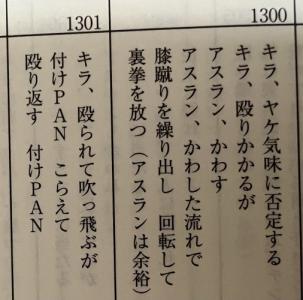 1300
キラ、ヤケ気味に否定する
キラ、殴りかかるが
アスラン、かわす
アスラン、かわした流れで
膝蹴りを繰り出し　回転して
裏拳を放つ（アスランは余裕）
1301
キラ、殴られて吹っ飛ぶが
付けＰＡＮ　こらえて
殴り返す　付けＰＡＮ